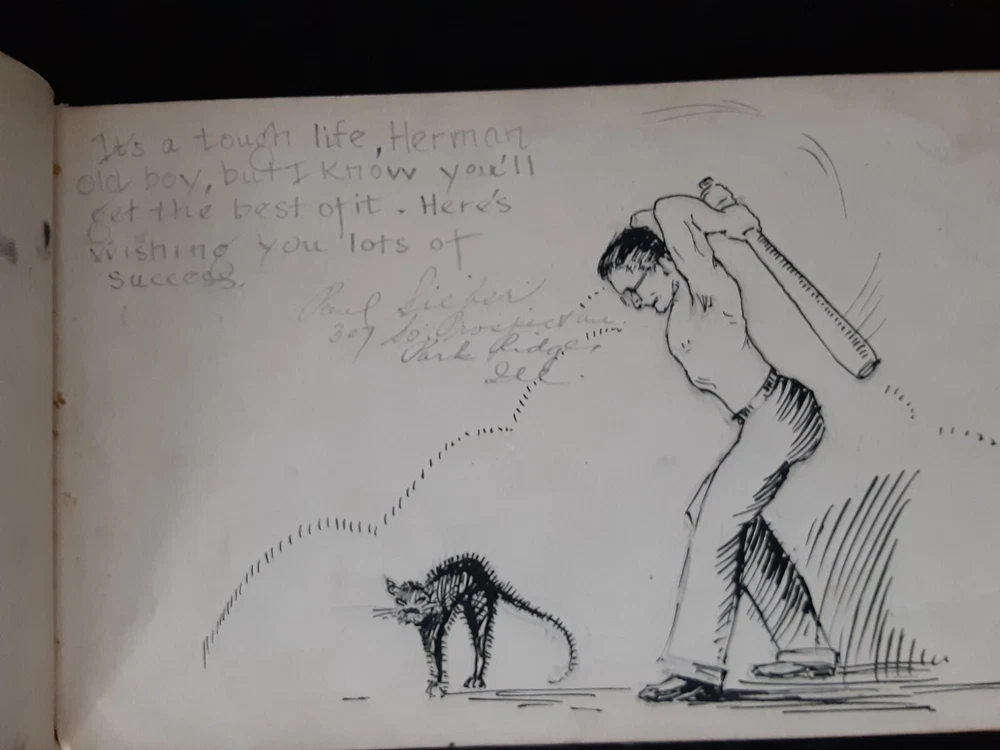 It's a tough life, Herman
old boy, but I know you'll
get the best of it. Here's
wishing you lots of
success.
Paul Sieber
307 So. Prospect Ave
Park Ridge,
Ill.